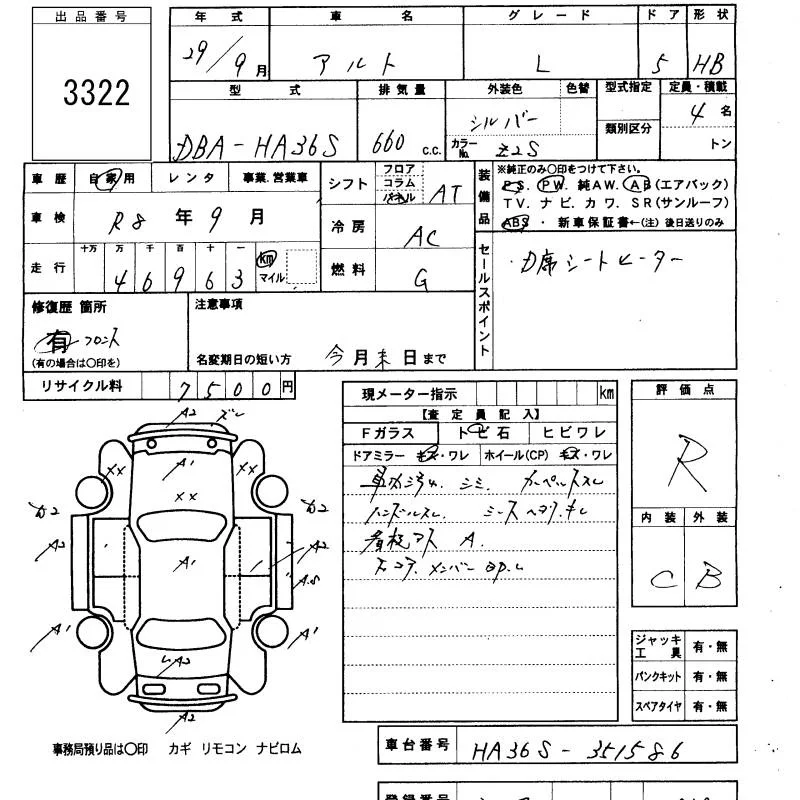 出品番号
3322
年式 車名 グレード ドア 形状
29/9月 アルト L 5 HB
型式 排気量 外装色 色替 型式指定 定員・積載
DBA-HA36S 660 c.c. シルバー カラーNo. Z2S 類別区分 4名 トン
車歴 自家用 レンタ 事業.営業車
車検 R8年9月
走行 十万 万 千 百 十 一
46963 km マイル
シフト フロア コラム パネル AT
冷房 AC
燃料 G
装備品 ※純正のみ〇印をつけて下さい。
PS. PW. 純AW. AB(エアバック)
TV. ナビ. カワ. SR(サンルーフ)
ABS ・ 新車保証書←(注) 後日送りのみ
セールスポイント
席シートヒーター
修復歴 箇所
有 フロント
(有の場合は〇印を)
注意事項
名変期日の短い方 今月末日まで
リサイクル料 7500円
現メーター指示 km
【査定員記入】
Fガラス トビ石 ヒビワレ
ドアミラー キズ・ワレ ホイール(CP) キズ・ワレ
シミ
A.
評価点
R
内装 外装
C B
A2
A1
XX XX
XX
A2
A1
A2
A1
A1
A2
A2
ジャッキ工具 有・無
パンクキット 有・無
スペアタイヤ 有・無
事務局預り品は〇印 カギ リモコン ナビロム
車台番号 HA36S-351586
登録番号